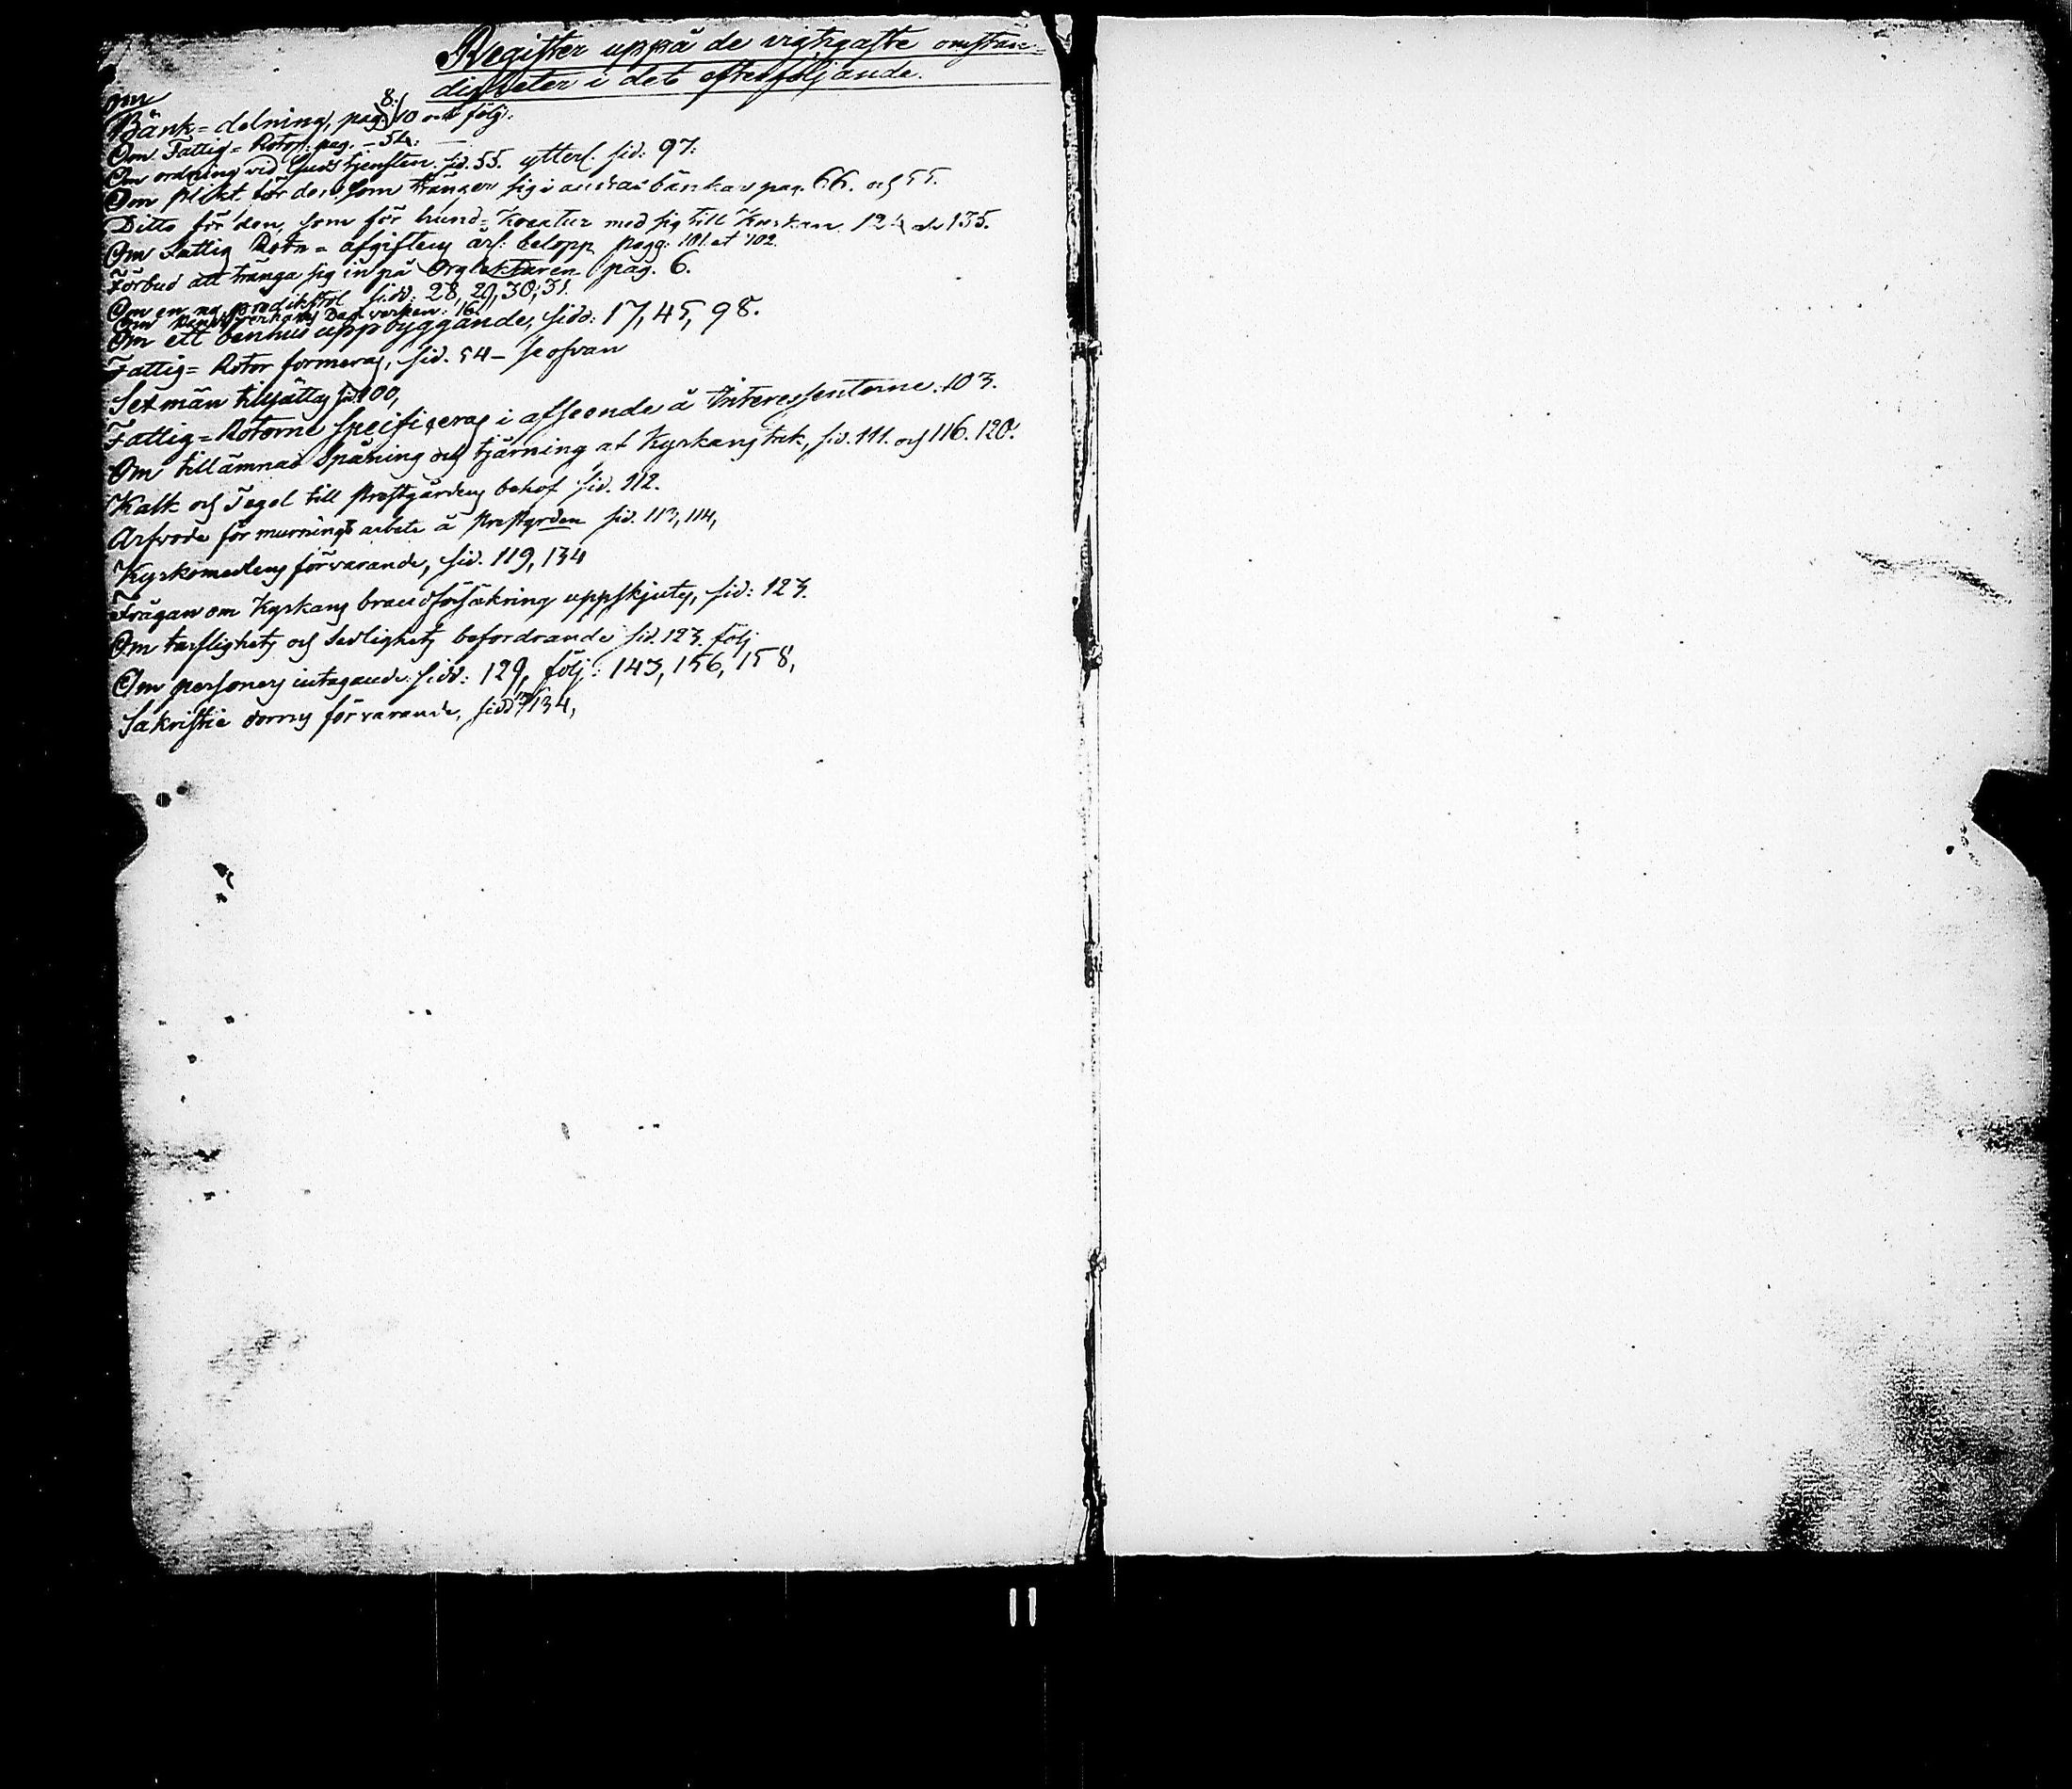 Register uppå de vigtigaste omstän=
digheter i det efterföljande.
Om
Bänk=delning, pag. 8. 10 och följ.
Om Fattig=Rotar: pag. - 54:
Om ordning vid Gudstjensten. sid. 55. ytterl. sid: 97:
Om plikt för den som tränger sig i andras bänkar pag. 66. och 55.
Ditto för den, som för hund=kreatur med sig till Kyrkan 124 och 135.
Om Fattig Rote=afgiftens årl: belopp pagg: 101. et 102.
Förbud att tränga sig in på Orglektaren pag. 6.
Om en ny predikstol sidd: 28, 29, 30, 31.
Om Dagsverken: 16.
Om ett benhus uppbyggande, sidd: 17, 45, 98.
Fattig=Rotor formeras, sid. 54 - se ofvan
Sexmän tillsättas sid. 100,
Fattig=Rotorne specificeras i afseende å Interessenterne. 103.
Om tillämnad spåning och tjärning af Kyrkans tak, sid. 111. och 116. 120.
Kalk och Tegel till Prestgårdens behof sid. 112.
Arfvode för murnings arbete å Prestgrden sid. 113, 114,
Kyrkomedlens förvarande, sid. 119, 134
Frågan om Kyrkans brandförsäkring uppskjutes, sid: 123.
Om tarflighets och sedlighets befordrande sid. 123. följ
Om personers intagande: sidd: 129, följ: 143, 156, 158,
Sakristie dörrns förvarande, sidd 134,
11